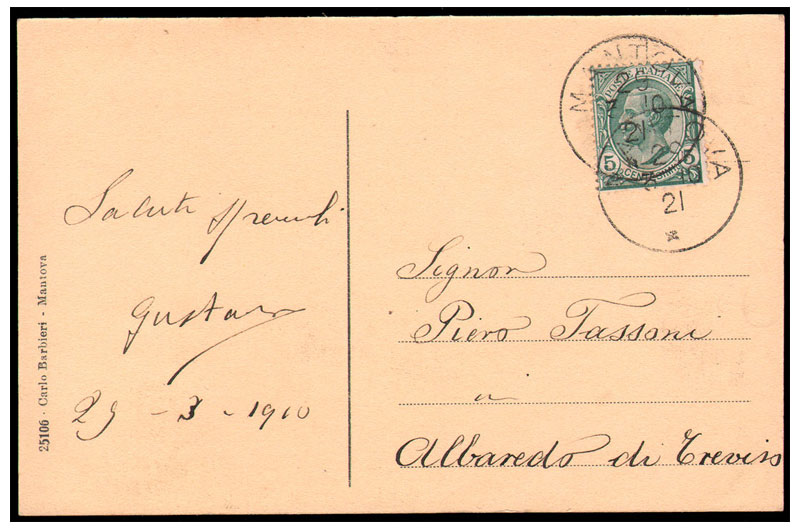 Saluti
Gustavo
29 - 3 - 1910
25106 - Carlo Barbieri - Mantova
MANTOVA
10
21
POSTE ITALIANE
5 5
CENTESIMI
21
Signor
Piero Tassoni
a
Albaredo di Treviso